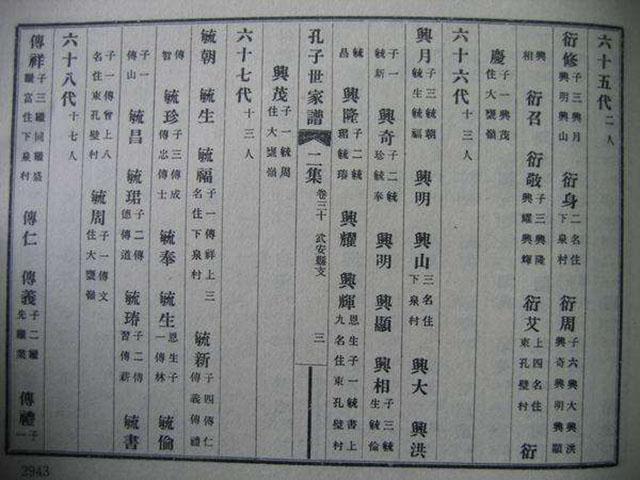 六十五代 二人
衍修 子三興月興明興山 衍身 二名住下泉村 衍周 子六興大興洪興奇興明興顯
興相 衍召 衍敬 子三興隆興耀興輝 衍艾 上四名住東孔壁村 衍
慶 子一興茂住大甕嶺
六十六代 十三人
興月 子三毓朝毓生毓福 興明 興山 三名住下泉村 興大 興洪
子一毓新 興奇 子二毓珍毓奉 興明 興顯 興相 子三毓生毓倫
毓昌 興隆 子二毓珺毓瑃 興耀 興輝 恩生子一毓書上九名住東孔壁村
孔子世家譜 二集 卷三十 武安縣支 三
興茂 子一毓周住大甕嶺
六十七代 十三人
毓朝 毓生 毓福 子一傳祥上三名住下泉村 毓新 子四傳仁傳義傳禮
傳智 毓珍 子三傳成傳忠傳士 毓奉 毓生 恩生子一傳林 毓倫
子一傳山 毓昌 毓珺 子二傳德傳道 毓瑃 子二傳習傳薪 毓書
子一傳曾上八名住東孔壁村 毓周 子一傳文住大甕嶺
六十八代 十七人
傳祥 子三繼同繼盛繼富住下泉村 傳仁 傳義 子二繼先繼業 傳禮 子一
2943